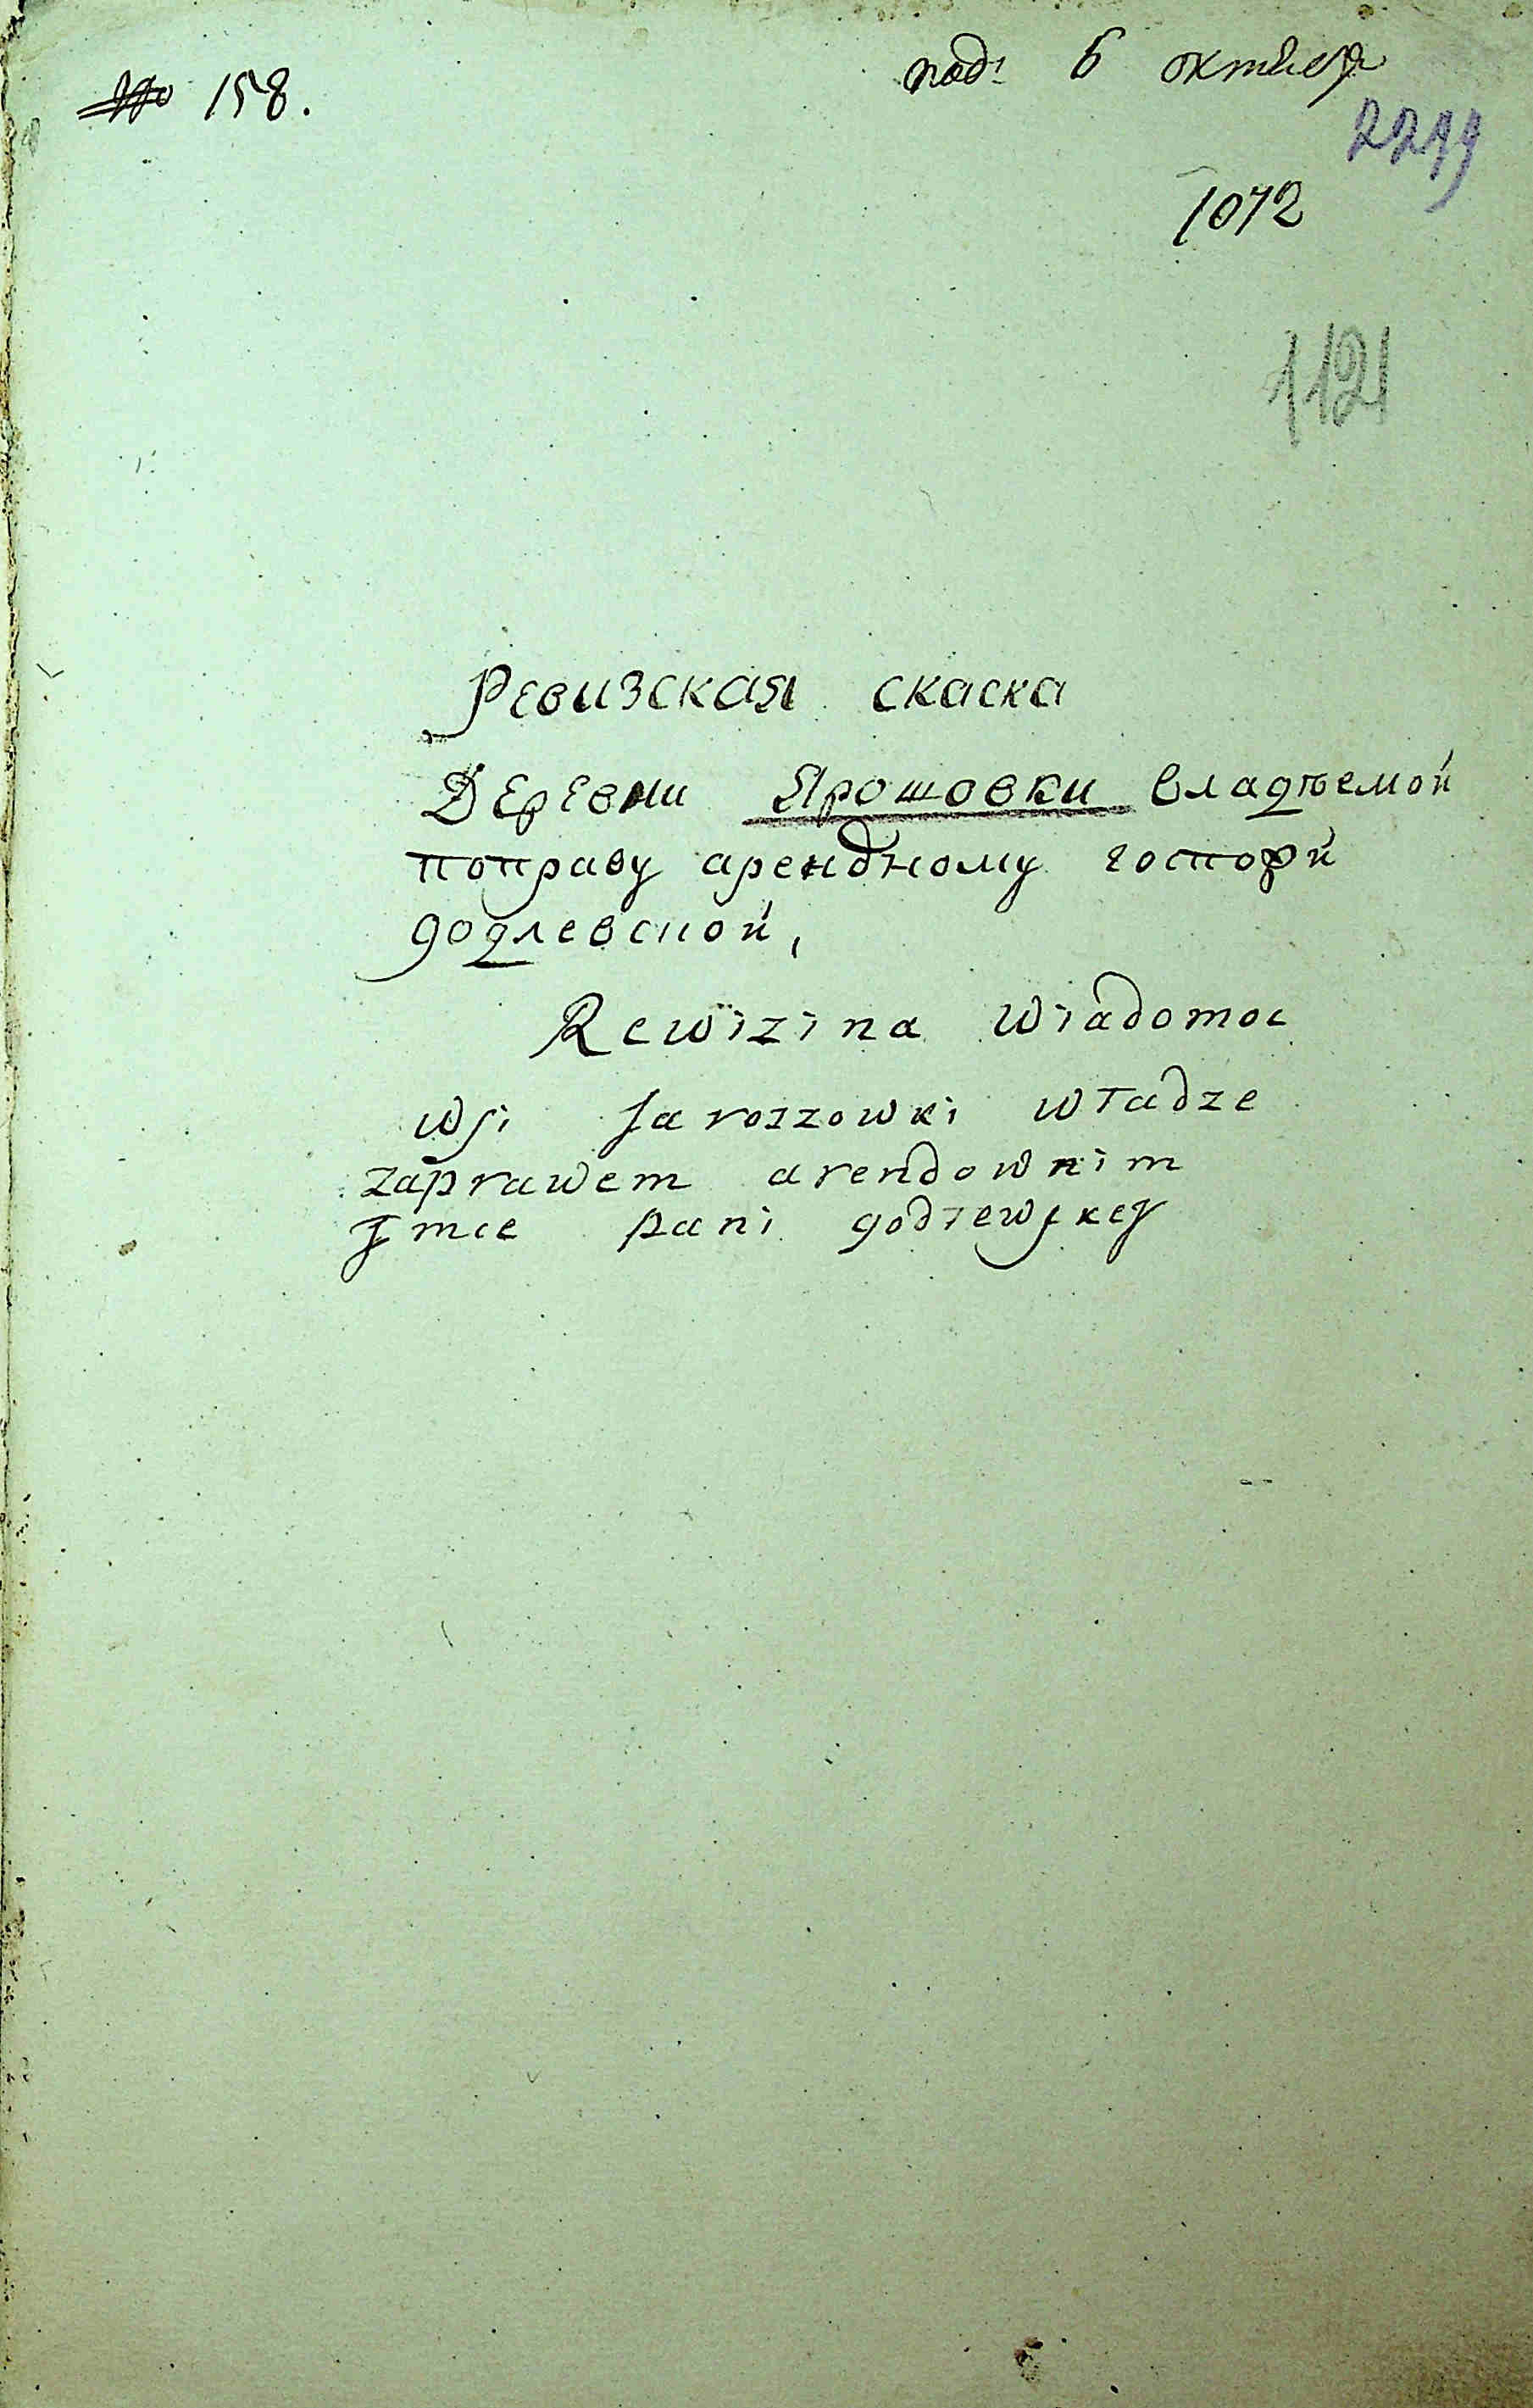 № 158.
под: 6 октября
2299
1072
1121
Ревизская скаска
Деревни Ярошовки владѣемой
поправу арендному госпожи
годлевской,
Rewizina wiadomoc
wsi Jaroszowki władze
zaprawem arendownim
Jmce pani godlewskey